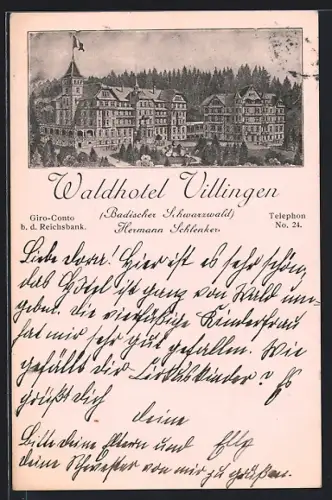 Waldhotel Villingen
(Badischer Schwarzwald)
Hermann Schlenker.
Giro-Conto
b. d. Reichsbank.
Telephon
No. 24.
Liebe Dora. Hier ist es sehr schön,
das Hotel ist ganz von Wald um=
geben. Die vierfüßige Kinderfrau
hat mir sehr gut gefallen. Wie
gefällt dir Lichtskinder? Es
grüßt dich
deine
Elly
Bitte deine Eltern und
deine Schwester von mir zu grüßen.